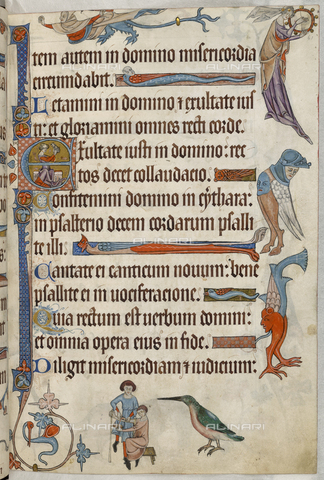 tem autem in domino misericordia
circumdabit.
Letamini in domino ⁊ exultate ius
ti: et gloriamini omnes recti corde.
Exultate iusti in domino: rec
tos decet collaudacio.
Confitemini domino in cythara:
in psalterio decem cordarum psalli
te illi.
Cantate ei canticum nouum: bene
psallite ei in uociferacione.
Quia rectum est uerbum domini:
et omnia opera eius in fide.
Diligit misericordiam ⁊ iudicium:
ALINARI
ALINARI
ALINARI